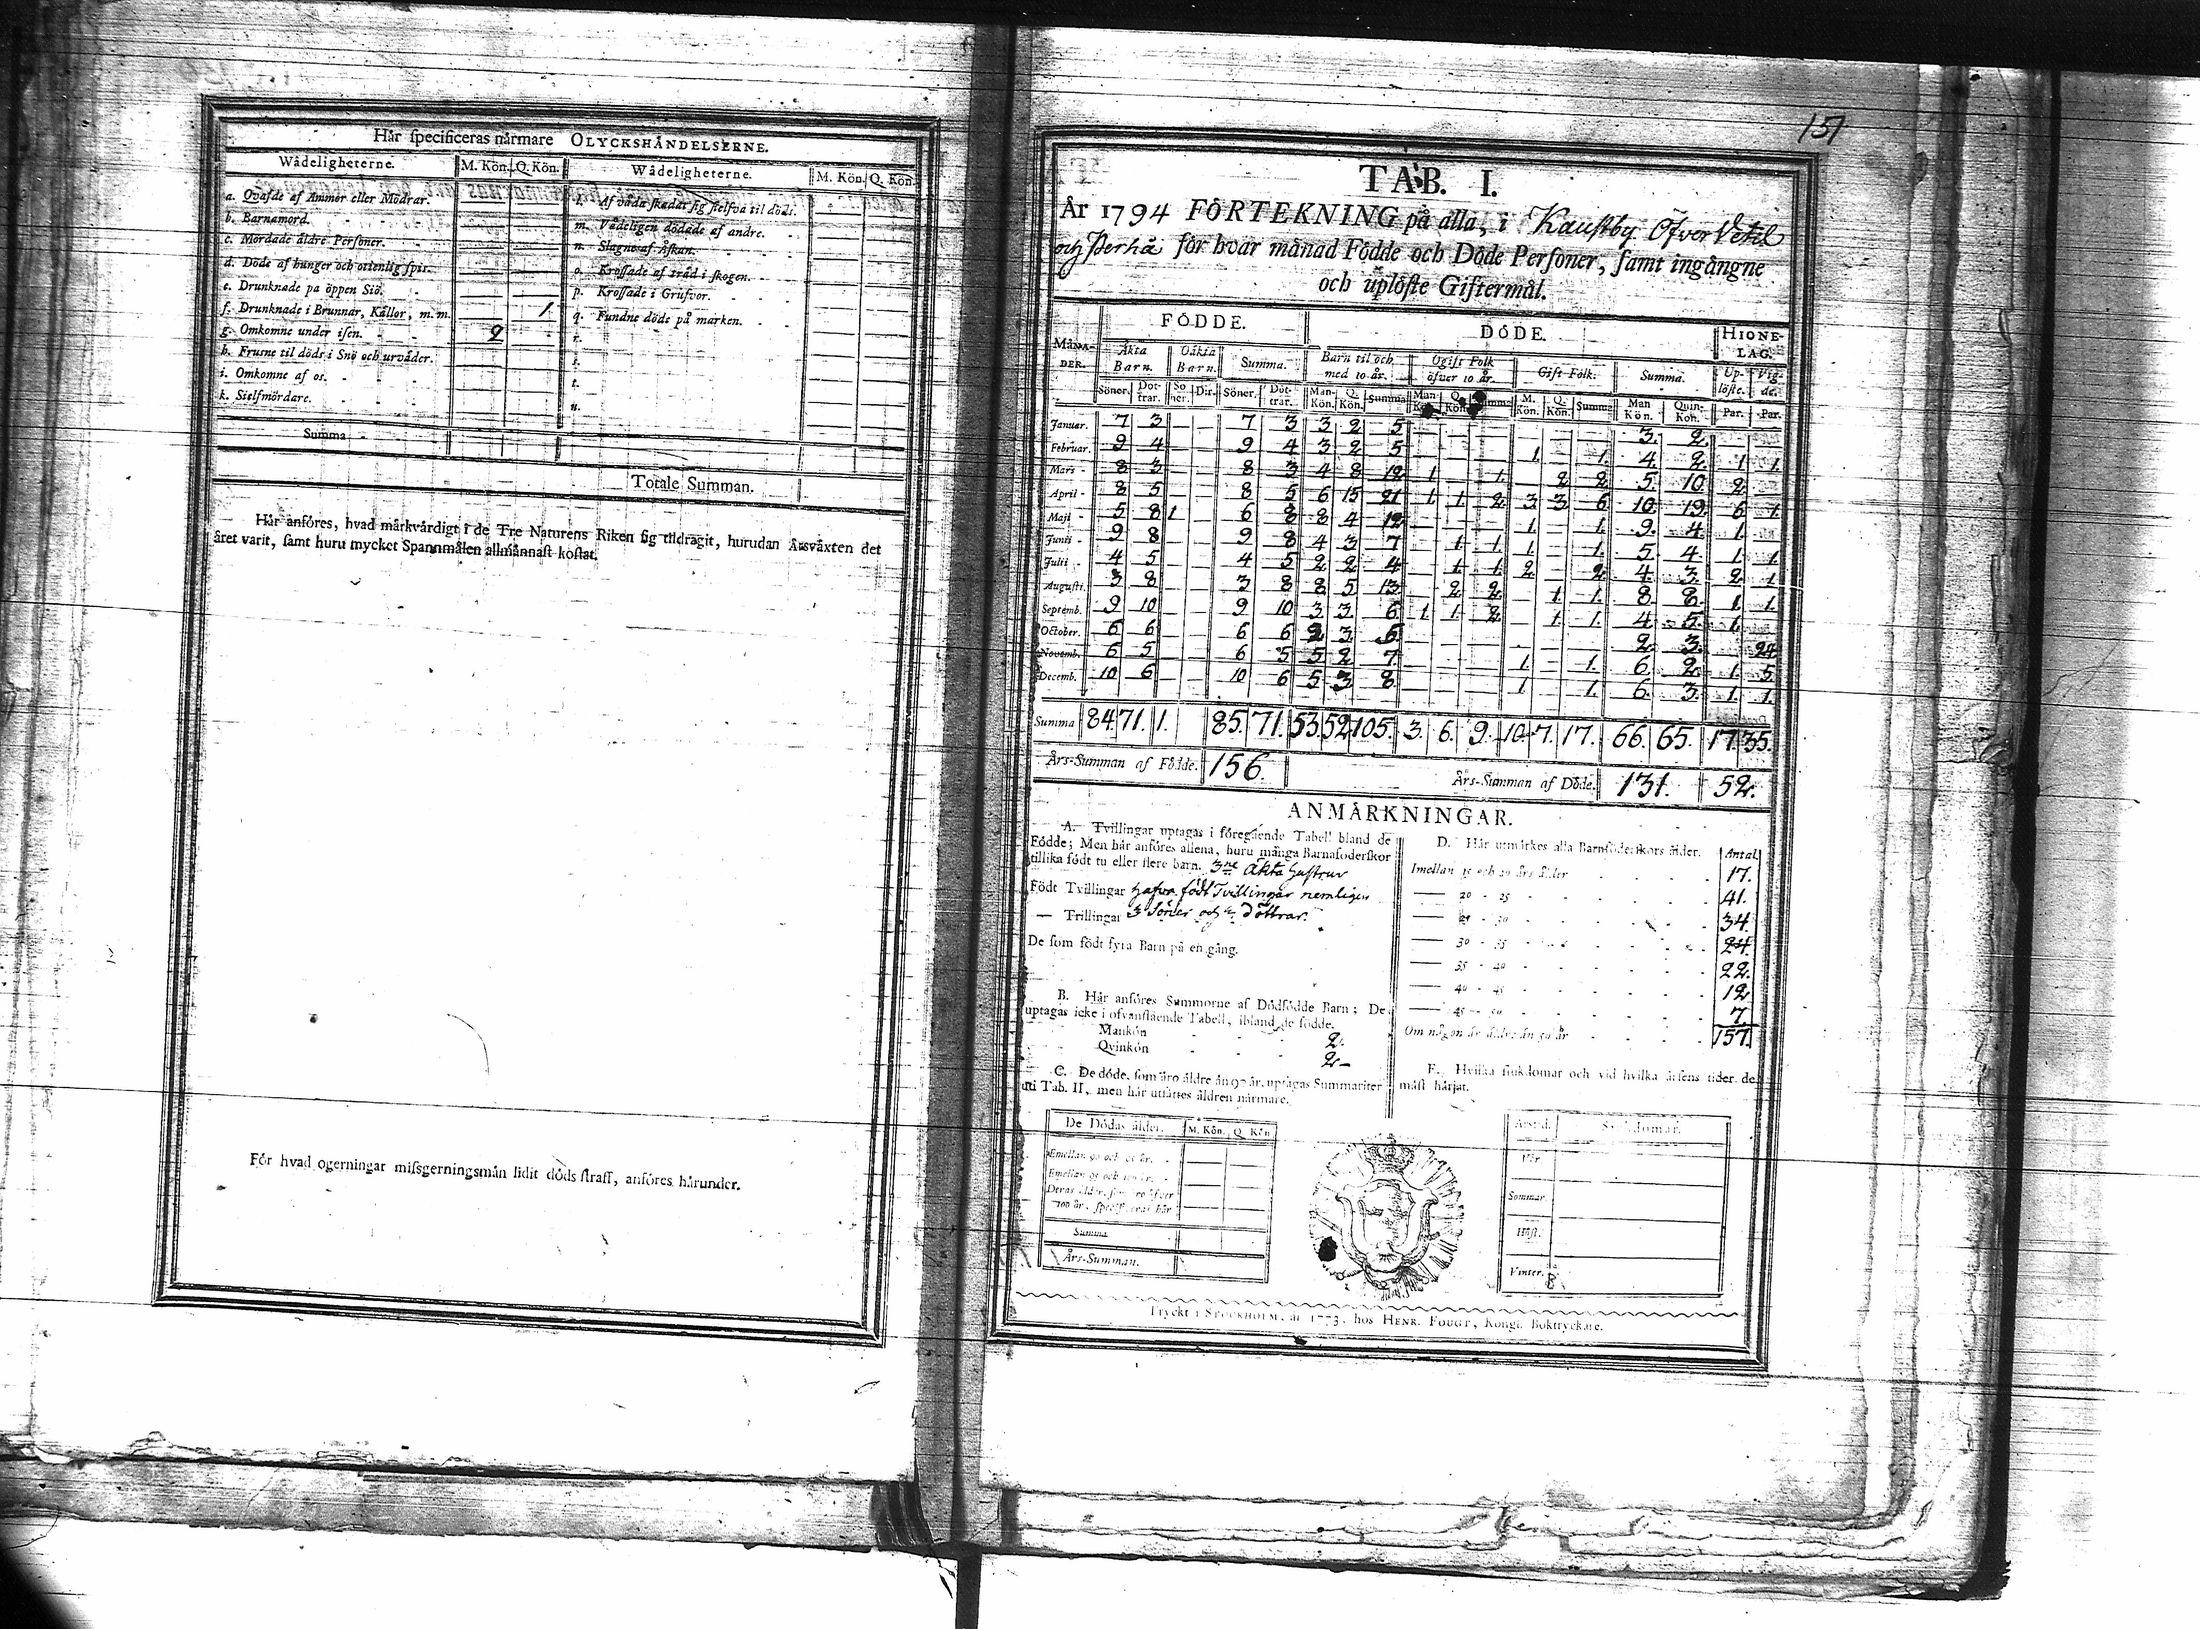 Hår specificeras nårmare OLYCKSHÅNDELSERNE.
Wådeligheterne. M. Kön. Q. Kön. Wådeligheterne. M. Kön. Q. Kön.
a. Qvafde af Ammor eller Mödrar. l. Af våda skadat sig sielfva til döds.
b. Barnamord. m. Vådeligen dödade af andre.
c. Mördade äldre Personer. n. Slagne af Åskan.
d. Döde af hunger och otienlig spis. o. Krossade af träd i skogen.
e. Drunknade på öppen Siö. p. Krossade i Grufvor.
f. Drunknade i Brunnar, Källor, m. m. 1 q. Fundne döde på marken.
g. Omkomne under isen. 2 r.
h. Frusne til döds i Snö och urväder. s.
i. Omkomne af os. t.
k. Sielfmördare. u.
Summa
Totale Summan.
Hår anföres, hvad mårkvårdigt i de Tre Naturens Riken sig tildragit, hurudan Årsväxten det
året varit, samt huru mycket Spannmålen allmånnast kostat.
För hvad ogerningar missgerningsmån lidit döds straff, anföres hårunder.
151
TAB. I.
År 1794 FÖRTEKNING på alla, i Kaustby Öfver Vetil
och Perho för hvar månad Födde och Döde Personer, samt ingångne
och uplöste Giftermål.
MÅNADER. FÖDDE. DÖDE. HIONELAG.
Äkta Barn. Oäkta Barn. Summa. Barn til och med 10 år. Ogift Folk öfver 10 år. Gift Folk. Summa. Uplöste. Vigde.
Söner. Döttrar. Söner. Dtr. Söner. Döttrar. Man Kön. Q. Kön. Summa Man Kön. Q. Kön. Summa M. Kön. Q. Kön. Summa Man Kön. Quin-Kön. Par. Par.
Januar. 7 3 7 3 3 2 5 3. 2.
Februar. 9 4 9 4 3 2 5 1. 1. 4. 2. 1. 1.
Mars 8 3 8 3 4 8 12 1 1. 2 2. 5. 10. 2.
April 8 5 8 5 6 15 21 1. 1. 2. 3. 3. 6 10. 19. 6. 1.
Maji 5 8 1 6 8 8 4 12 1. 1. 9. 4. 1.
Junii 9 8 9 8 4 3 7 1. 1. 1. 1. 5. 4. 1. 1.
Julii 4 5 4 5 2 2 4 1. 1. 2. 2. 4. 3. 2. 1.
Augusti. 3 8 3 8 8 5 13. 2. 2. 1. 1. 8. 8. 1. 1.
Septemb. 9 10 9 10 3 3 6 1 1. 2. 1. 1. 4. 5. 1.
October. 6 6 6 6 2 3 5. 2. 3. 24
Novemb. 6 5 6 5 5 2 7 1. 1. 6. 2. 1. 5
Decemb. 10 6 10 6 5 3 8 1. 1. 6. 3. 1. 1.
Summa 84 71. 1. 85. 71. 53. 52 105. 3. 6. 9. 10. 7. 17. 66. 65. 17. 35.
Års-Summan af Födde. 156. Års-Summan af Döde. 131. 52.
ANMÅRKNINGAR.
A. Tvillingar uptagas i föregående Tabell bland de
Födde; Men hår anföres allena, huru många Barnaföderskor
tillika födt tu eller flere barn. 3ne Äkta Hustrur
Födt Tvillingar hafva födt Tvillingar nemligen
— Trillingar 3 Söner och Döttrar.
De som födt fyra Barn på en gång.
B. Hår anföres Summorne af Dödfödde Barn; De
uptagas icke i ofvanstående Tabell, ibland de födde.
Mankön 2.
Qvinkön 2
C. De döde, som äro äldre än 90 år, uptagas Summariter
uti Tab. II, men hår utsättes åldren nårmare.
De Dödas ålder. M. Kön. Q. Kön
Emellan 90 och 95 år.
Emellan 95 och 100 år.
Deras ålder, som öfver
100 år, specificeras hår
Summa
Års-Summan.
D. Hår utmårkes alla Barnföderskors ålder. Antal
Imellan 15 och 20 års ålder 17.
— 20 - 25 41.
— 25 - 30 34.
— 30 - 35 24.
— 35 - 40 22.
— 40 - 45 12
— 45 - 50 7.
Om någon är äldre än 50 år 157.
E. Hvilka siukdomar och vid hvilka årsens tider de
måst hårjat.
Årstid. Siukdomar.
Vår.
Sommar.
Höst.
Vinter.
Tryckt i STOCKHOLM, år 1773, hos HENR. FOUGT, Kongl. Boktryckare.